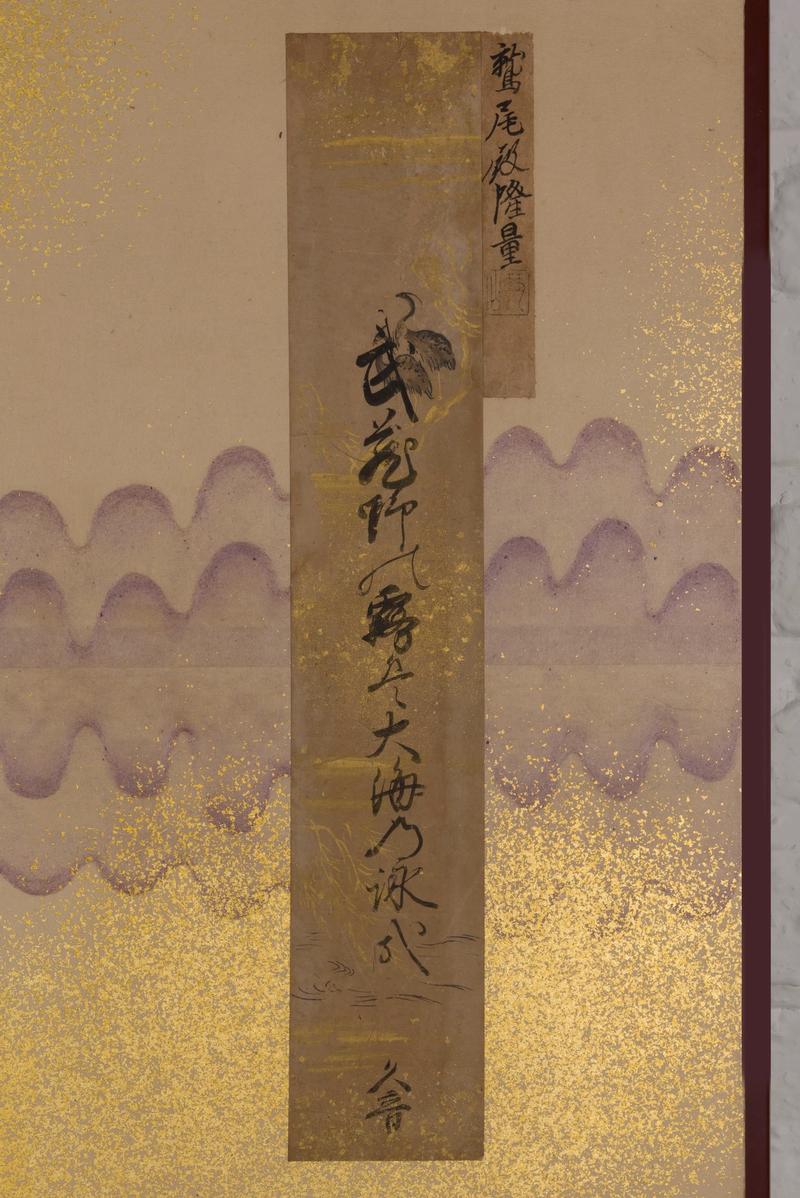 鷲尾殿隆量
武蔵野の露は大海乃詠哉
久音